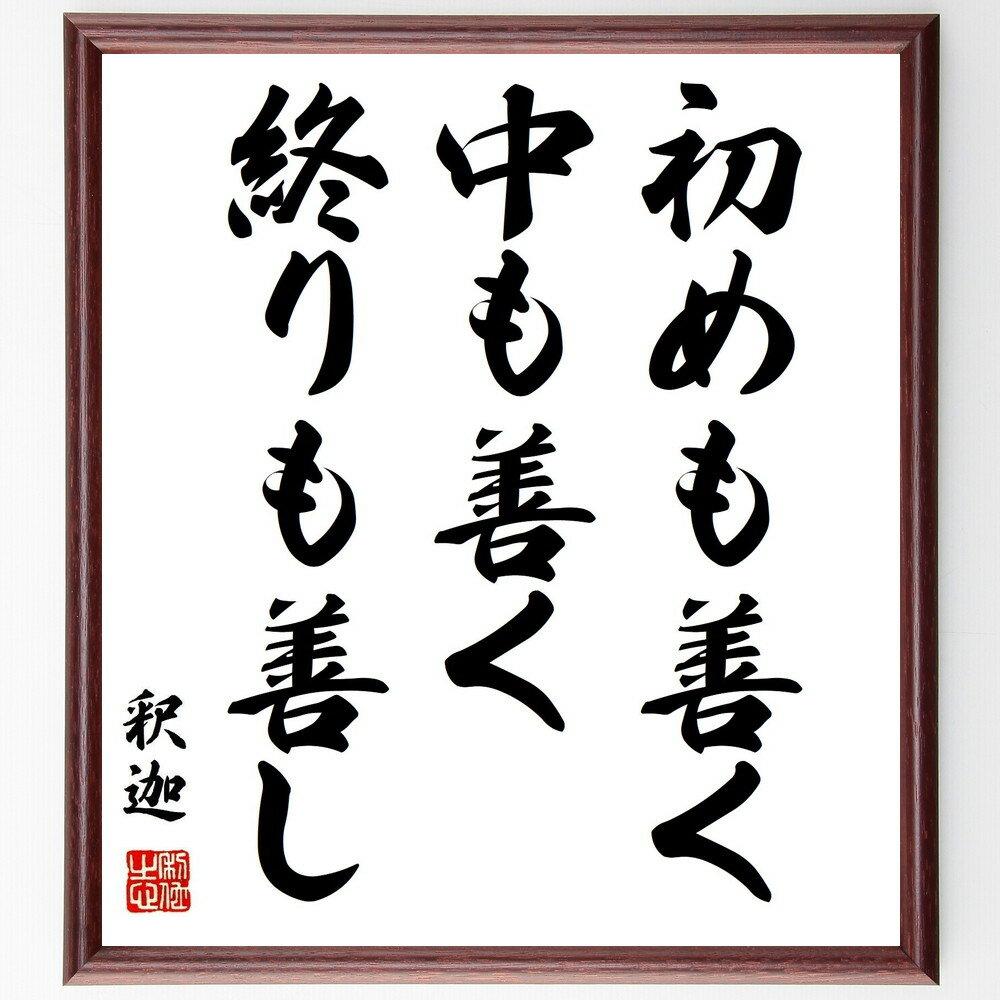 初めも善く
中も善く
終りも善し
釈迦